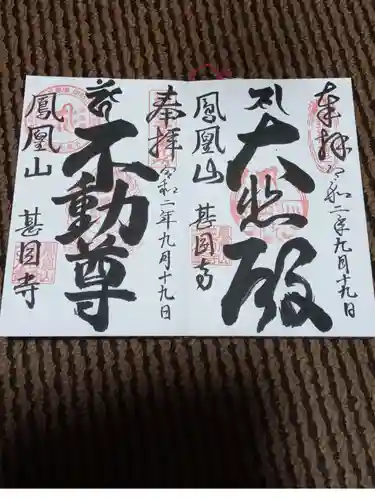 奉拝
令和二年九月十九日
大悲殿
鳳凰山
甚目寺
奉拝
令和二年九月十九日
不動尊
鳳凰山
甚目寺